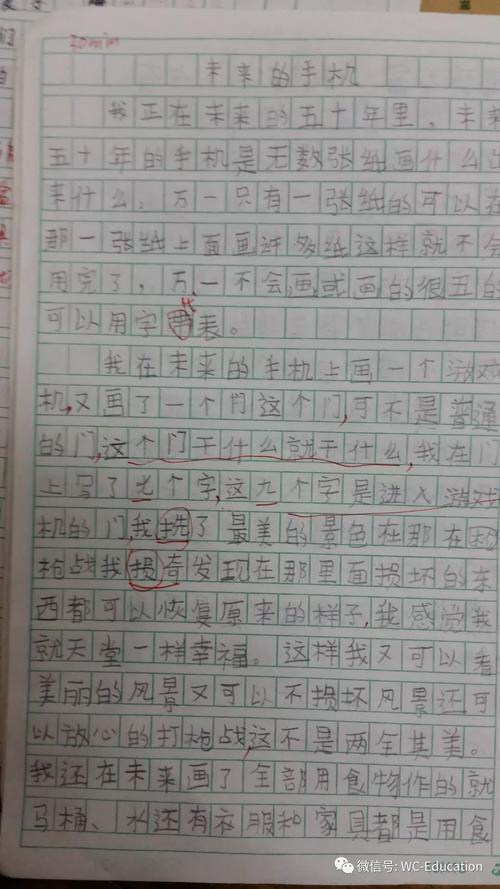 30min
未来的手机
我正在未来的五十年里,未来
五十年的手机是无数张纸画什么出
来什么,万一只有一张纸的可以在
那一张纸上面画许多纸这样就不会
用完了,万一不会画或画的很丑的
代
可以用字带表。
我在未来的手机上画一个游戏
机,又画了一个门这个门,可不是普通
的门,这个门干什么就干什么,我在门
上写了九个字,这九个字是进入游戏
机的门,我挑了最美的景色在那在
枪战我损奇发现在那里面损坏的东
西都可以恢复原来的样子,我感觉我
就天堂一样幸福。这样我又可以看
美丽的风景又可以不损坏风景还可
以放心的打枪战,这不是两全其美。
我还在未来画了全部用食物作的就
马桶、水还有衣服和家具都是用食
微信号: WC-Education